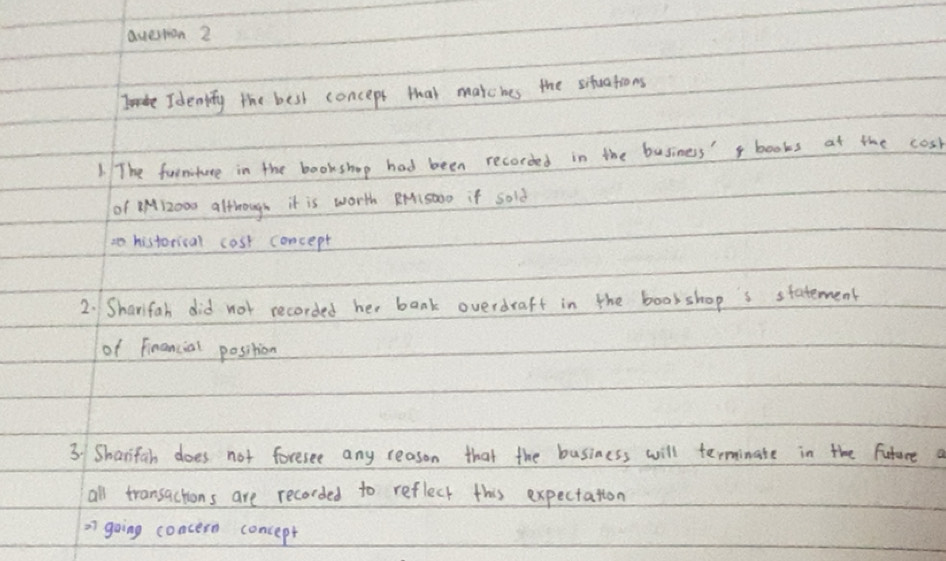 Question 2
Identify the best concept that matches the situations
1. The furniture in the bookshop had been recorded in the business' books at the cost
of RM12000 although it is worth RM15000 if sold
=> historical cost concept
2. Sharifah did not recorded her bank overdraft in the bookshop's statement
of Financial position
3. Sharifah does not foresee any reason that the business will terminate in the Future a
all transactions are recorded to reflect this expectation
=> going concern concept